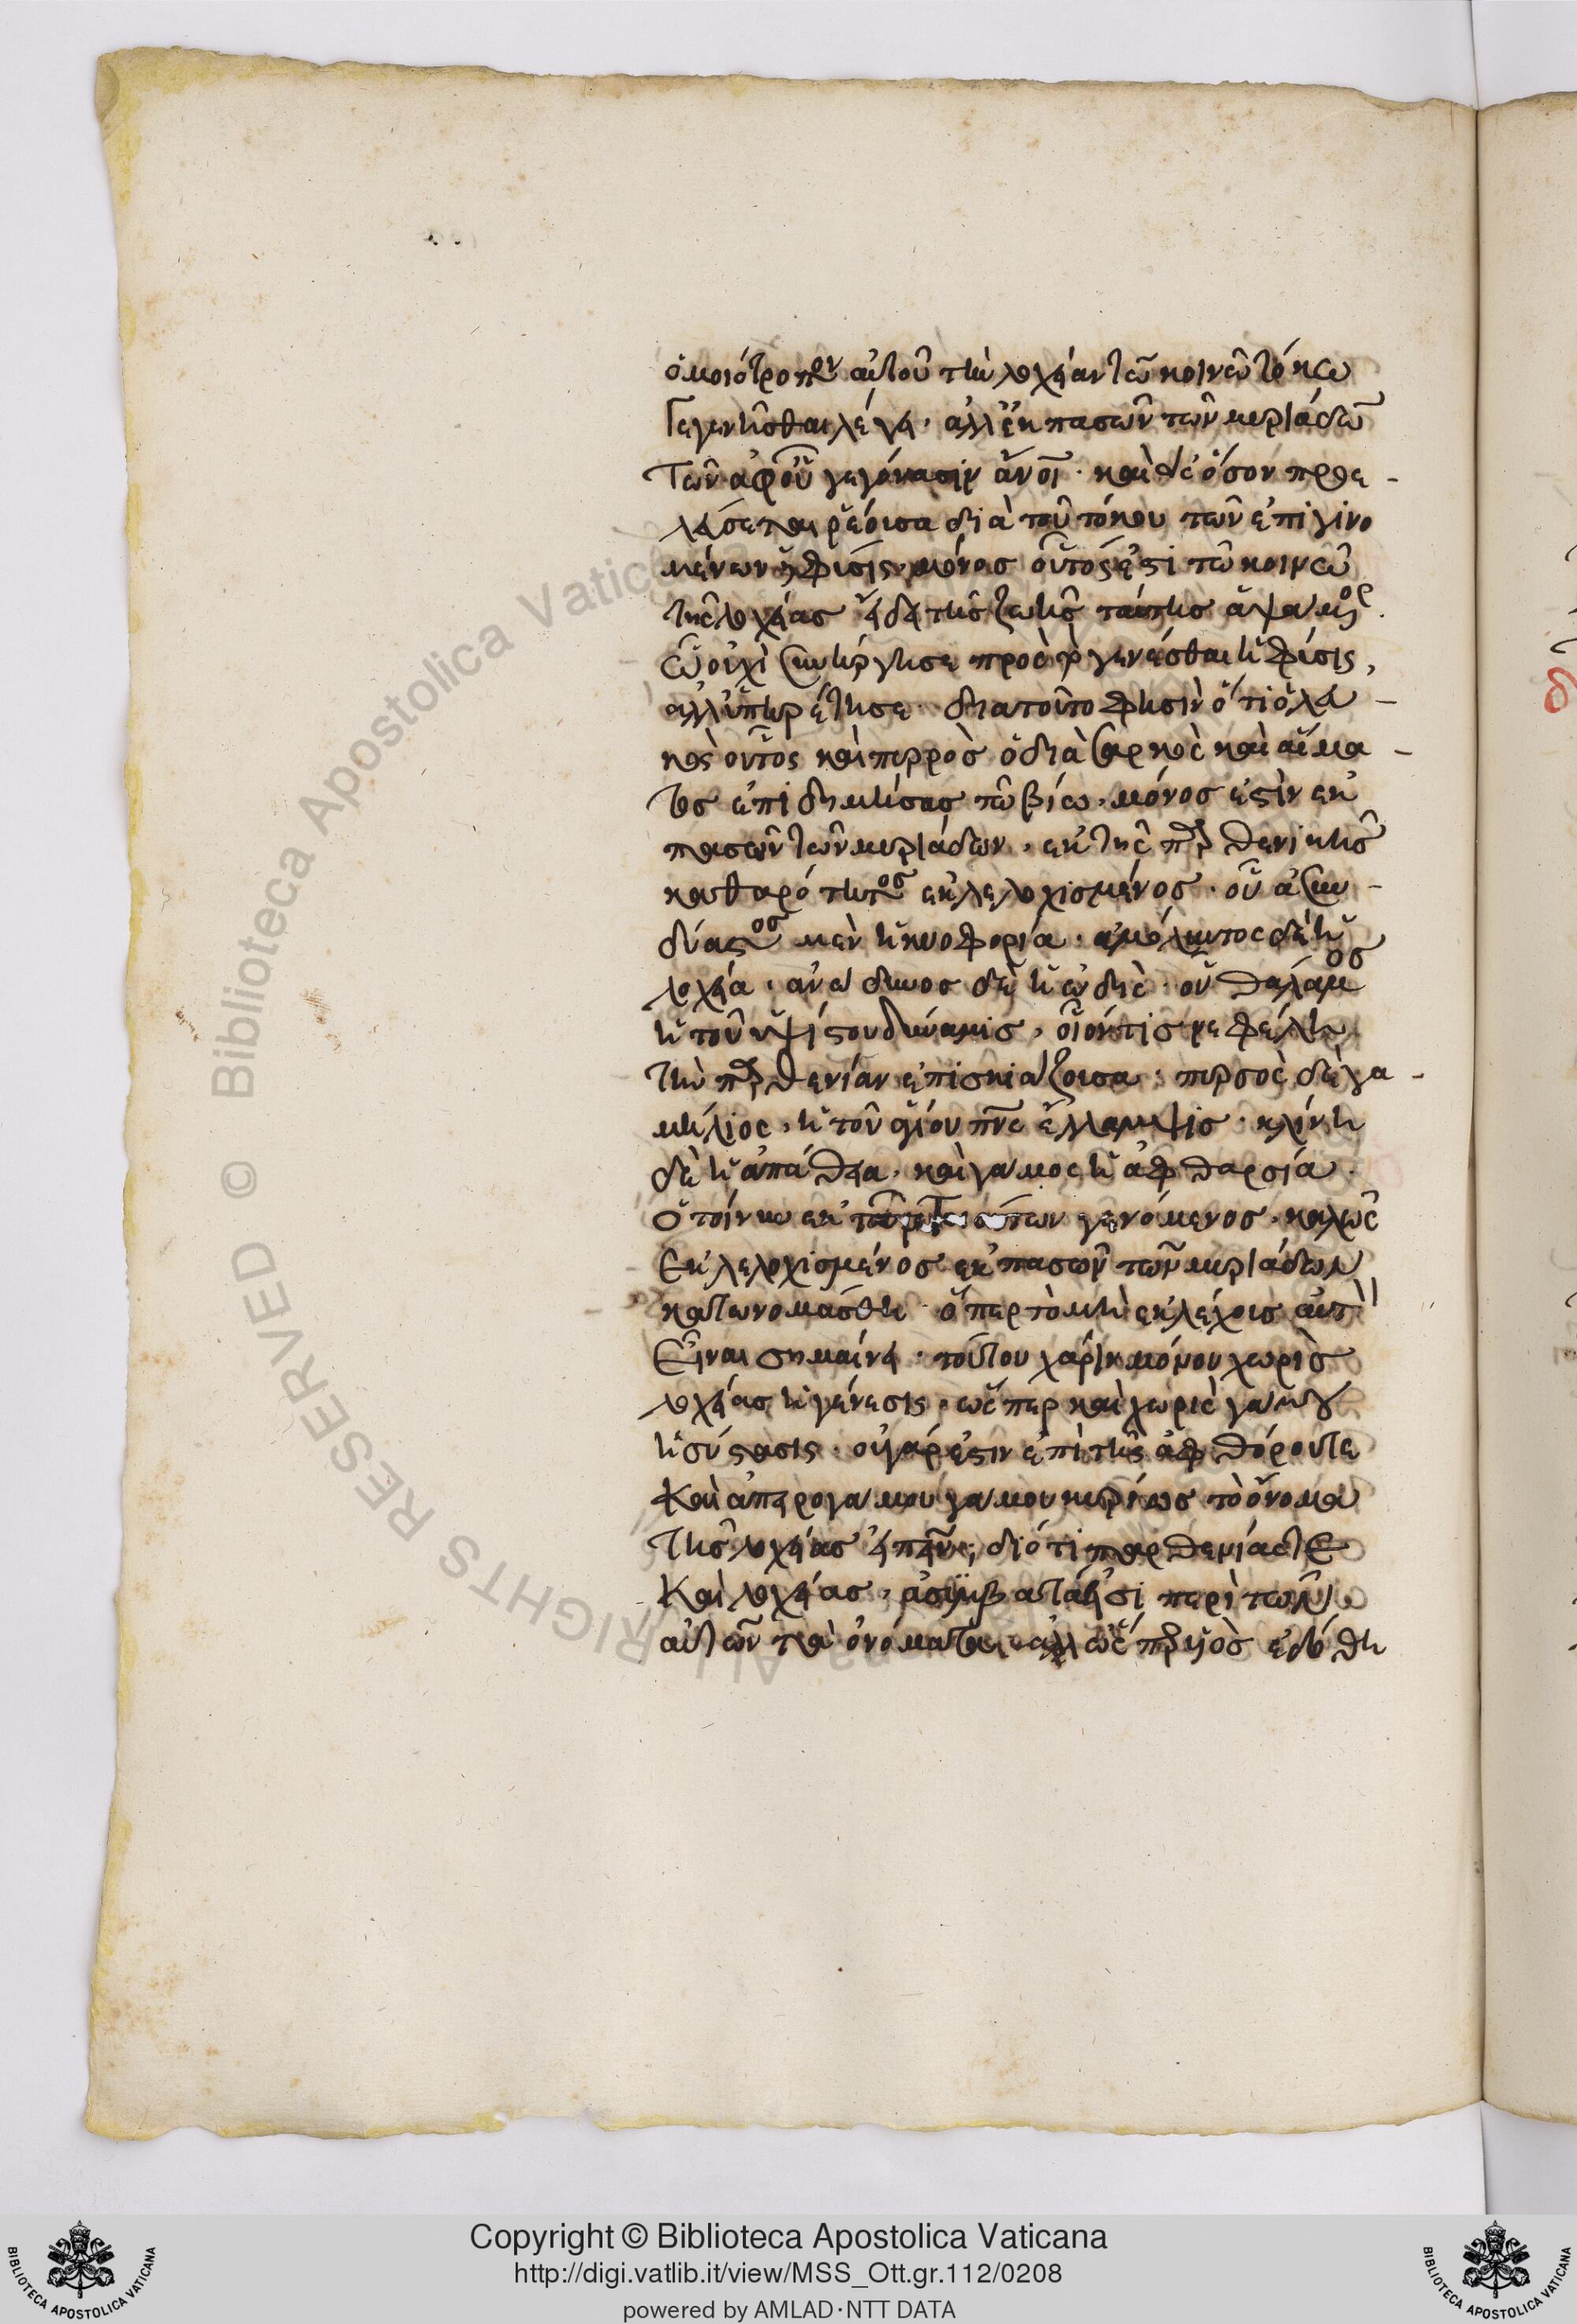 ὁμοιότροπον αὐτοῦ τὴν λοχείαν τῶ κοινῶ τόκω
γεγενῆσθαι λέγει· ἀλλ' ἐκ πασῶν τῶν μυριάδων
τῶν ἀφ' οὗ γεγόνασιν ἄνοι· καὶ ἐς ὅσον προε-
λεύσεται ῥέουσα διὰ τοῦ τόκου τῶν ἐπιγινο
μένων ἡ φύσις μόνος οὗτός ἐστι τῶ καινῶ
τῆς λοχείας εἴδει τῆς ζωῆς ταύτης ἁψάμενος
ὧ οὐχὶ συνήργησε πρὸς τὸ γενέσθαι ἡ φύσις,
ἀλλ' ὑπηρέτησε· διατοῦτο φησὶν ὅτι ὁ λευ-
κὸς οὗτος καὶ πυρρὸς ὁ διὰ σαρκὸς καὶ αἵμα-
τος ἐπιδημήσας τῶ βίω, μόνος ἐστὶν ἐκ
πασῶν τῶν μυριάδων, ἐκ τῆς παρθενικῆς
καθαρότητος ἐκλελοχισμένος· οὗ ἀσυν-
δύαστος μὲν ἡ κυοφορία, ἀμόλυντος δὲ ἡ
λοχεία, ἀνώδυνος δὲ ἡ ὠδὶς· οὗ θάλαμος
ἡ τοῦ ὑψίστου δύναμις, οἷόν τις νεφέλη
τὴν παρθενίαν ἐπισκιάζουσα· πυρσὸς δὲ γα-
μήλιος, ἡ τοῦ ἁγίου πνς ἔλλαμψις· κλίνη
δὲ ἡ ἀπάθεια, καὶ γάμος ἡ ἀφθαρσία.
Ὁ τοίνυν ἐκ τῶν τοιούτων γενόμενος, καλῶς
ἐκλελοχισμένος ἐκ πασῶν τῶν μυριάδων
κατωνομάσθη· ὅπερ τὸ μὴ ἐκ λέχους αὐτὸν
εἶναι σημαίνει· τούτου χάριν μόνου χωρὶς
λοχείας ἡ γένεσις, ὥσπερ καὶ χωρὶς γάμου
ἡ σύστασις· οὐ γάρ ἐστιν ἐπὶ τῆς ἀφθόρου τε
καὶ ἀπειρογάμου γάμου κυρίως τὸ ὄνομα
τῆς λοχείας εἰπεῖν, διότι παρθενίας τε
καὶ λοχείας, ἀσύμβατά ἐστι περὶ τῶν
αὐτῶν τὰ ὀνόματα, ἀλλ' ὡς υἱὸς ἐδόθη